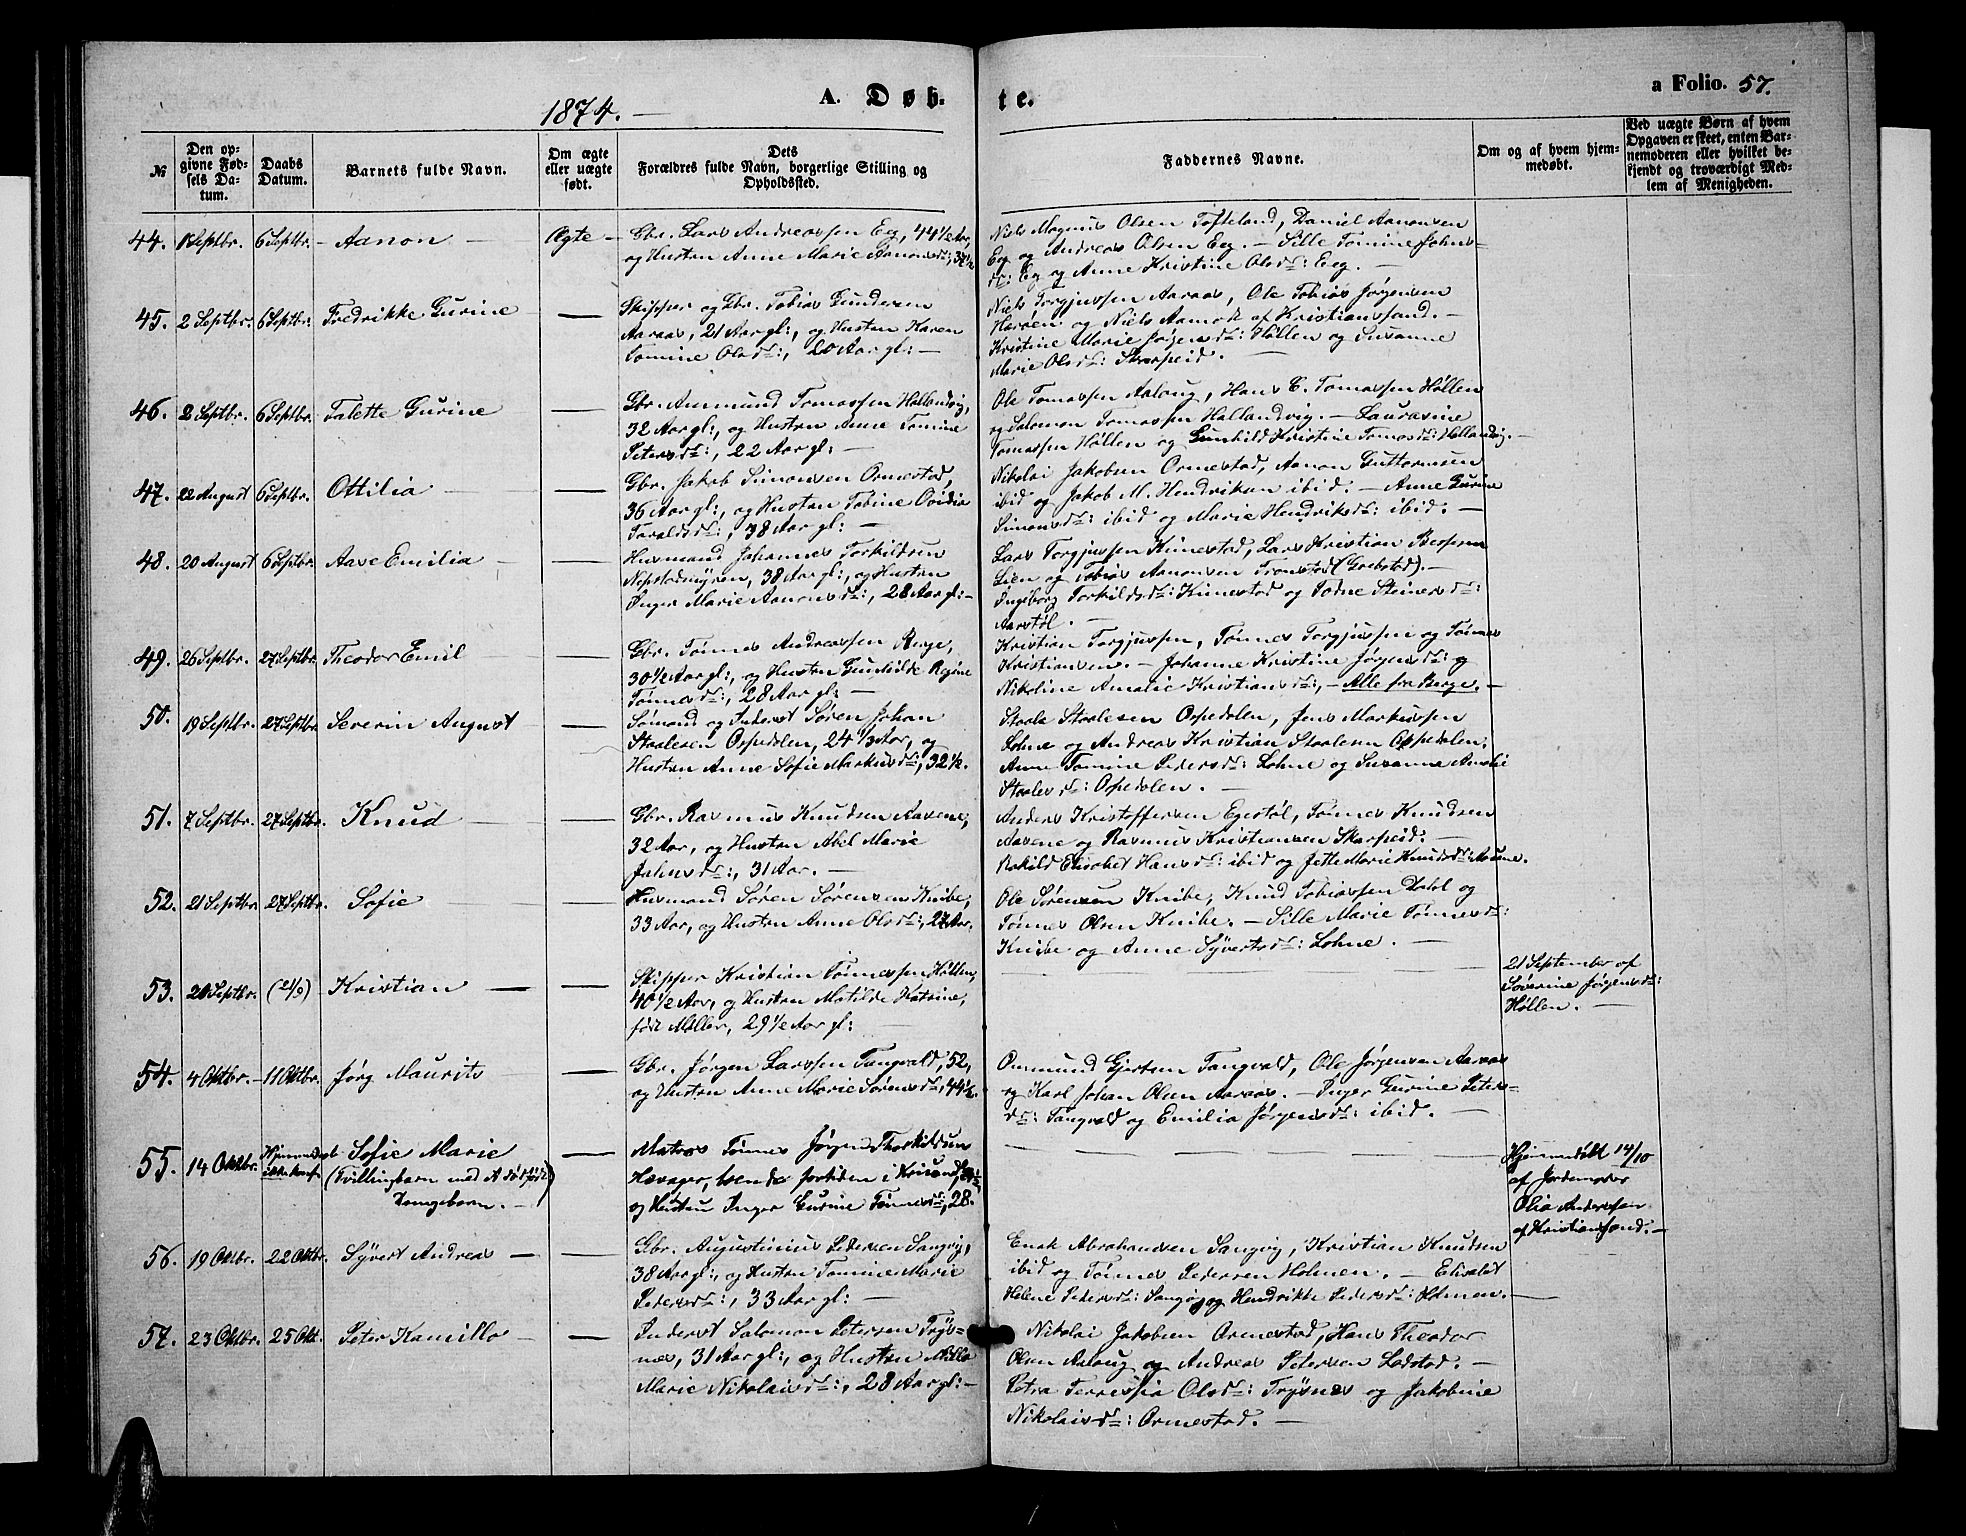 1874. —
A. Døb-
te.
a Folio. 57.
№
Den op-
givne Fød-
sels Da-
tum.
Daabs
Datum.
Barnets fulde Navn.
Om ægte
eller uægte
født.
Dets
Forældres fulde Navn, borgerlige Stilling og
Opholdssted.
Faddernes Navne.
Om og af hvem hjem-
medøbt.
Ved uægte Børn af hvem
Opgaven er skeet, enten Bar-
nemoderen eller hvilket be-
kjendt og troværdigt Med-
lem af Menigheden.
44. 1 Septbr. 6 Septbr. - Aanon — Ægte -
Gbr. Lars Andreassen Eeg, 44 1/2 Aar,
og Hustru Anne Marie Aanonsdr:, 37 1/2
Niels Magnus Olsen Tofteland, Daniel Aanonsen
Eeg og Andreas Olsen Eeg. — Sille Tomine Johns-
dr: Eeg og Anne Kristine Olsdr: Eeg. —
45. 2 Septbr. 6 Septbr. Fredrikke Gurine —
Skipper og Gbr. Tobias Gundersen
Aaraas, 21 Aar gl:, og Hustru Karen
Tomine Olsdr:, 20 Aar gl: —
Niels Torgjussen Aaraas, Ole Tobias Jørgensen
Herøen og Niels Aamodt af Kristianssand. —
Kristine Marie Jørgensdr: Høllen og Susanne
Marie Olsdr: Skarpeid. —
46. 2 Septbr. 6 Septbr. Talette Gurine —
Gbr. Aanmund Tomassen Hallandvig,
32 Aar gl:, og Hustru Anne Tomine
Petersdr:, 22 Aar gl: —
Ole Tomassen Aalaug, Hans C. Tomassen Høllen
og Salomon Tomassen Hallandvig. — Laurasine
Tomassen Høllen og Gunhild Kristine Tomasdr: Hallandvig. —
47. 22 August 6 Septbr. Ottilia —
Gbr. Jakob Simonsen Ormestad,
36 Aar gl:, og Hustru Tobine Ovidia
Taraldsdr:, 38 Aar gl: —
Nikolai Jakobsen Ormestad, Aanon Guttormsen
ibid og Jakob M. Hendriksen ibid. — Anne Gurine
Simonsdr: ibid og Marie Hendriksdr: ibid. —
48. 20 August 6 Septbr. Aase Emilia —
Husmand Johannes Torkildsen
Nepstadmyren, 38 Aar gl:, og Hustru
Inger Marie Aanonsdr:, 28 Aar gl: —
Lars Torgjussen Kimestad, Lars Kristian Jespersen
Lien og Tobias Aanonsen Tronstad (Grebstad). —
Ingeborg Torkildsdr: Kimestad og Todne Steinersdr:
Aarstøl. —
49. 26 Septbr. 27 Septbr. Theodor Emil —
Gbr. Tønnes Andreassen Berge,
30 1/2 Aar gl:, og Hustru Gunhilde Regine
Tønnesdr:, 28 Aar gl: —
Kristian Torgjussen, Tønnes Torgjussen og Tønnes
Kristiansen. — Johanne Kristine Jørgensdr: og
Nikoline Amalie Kristiansdr:, — Alle fra Berge. —
50. 19 Septbr. 27 Septbr. Severin August —
Sømand og Inderst Søren Johan
Staalesen Ospedalen, 24 1/3 Aar, og
Hustru Anne Sofie Markusdr:, 32 1/2.
Staale Staalesen Ospedalen, Jens Markussen
Lohne og Andreas Kristian Staalesen Ospedalen.
Anne Tomine Pedersdr: Lohne og Susanne Amalie
Staalesdr: Ospedalen. —
51. 7 Septbr. 27 Septbr. Knud —
Gbr. Rasmus Knudsen Aasene,
32 Aar, og Hustru Abel Marie
Jahnsdr:, 31 Aar. —
Anders Kristoffersen Egestøl, Tønnes Knudsen
Aasene og Rasmus Kristiansen Skarpeid. —
Elisabet Hansdr: ibid og Jette Marie Knudsdr: Aasene.
52. 21 Septbr 27 Septbr. Sofie —
Husmand Søren Sørensen Knibe,
33 Aar, og Hustru Anne Olsdr:, 27 Aar.
Ole Sørensen Knibe, Knud Tobiassen Dahl og
Tønnes Olsen Knibe. — Sille Marie Tønnesdr:
Knibe og Anne Syvertsdr: Lohne. —
53. 20 Septbr. (21/9) Kristian —
Skipper Kristian Tønnessen Høllen,
40 1/2 Aar, og Hustru Matilde Katrine,
født Møller, 29 1/2 Aar gl: —
21 September af
Søverine Jørgensdr:
Høllen. —
54. 4 Oktbr. - 11 Oktbr. Jørg Maurits —
Gbr. Jørgen Larssen Tangvald, 52,
og Hustru Anne Marie Sørensdr:, 44 1/2.
Omund Gjertsen Tangvald, Ole Jørgensen Aaraas
og Karl Johan Olsen Aaraas. — Inger Gurine Peters-
dr: Tangvald og Emilia Jørgensdr: ibid. —
55. 14 Oktbr. Hjemmedøbt Sofie Marie
(Tvillingbarn med et dødfødt
Drengebarn. —)
Matros Tønnes Jørgen Thorkildsen
Havager, boende fortiden i
og Hustru Inger Gurine Tønnesdr:, 28.
Hjemmedøbt 14/10
af Jordemoder
Olia Anderssen
af Kristianssand. —
56. 19 Oktbr. 22 Oktbr. Syvert Andreas —
Gbr. Augustinius Pedersen Langvig,
38 Aar gl:, og Hustru Tomine Marie
Pedersdr:, 33 Aar gl: —
Enok Abrahamsen Langvig, Kristian Knudsen
ibid og Tønnes Pedersen Holmen. — Elisabet
Helene Pedersdr: Langvig og Hendrikke Pedersdr: Holmen. —
57. 23 Oktbr. 25 Okt. Peter Kamillo —
Inderst Salomon Petersen Trys-
nes, 31 Aar gl:, og Hustru Milla
Marie Nikolaisdr:, 28 Aar gl: —
Nikolai Jakobsen Ormestad, Hans Theodor
Olsen Aalaug og Andreas Petersen Ladstad. —
Petra Terressia Olsdr: Trysnes og Jakobine
Nikolaisdr: Ormestad. —